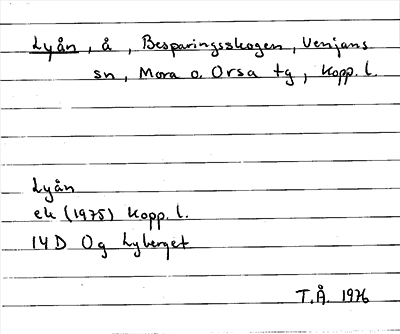 Lyån, å, Besparingsskogen, Venjans
sn, Mora o. Orsa tg, Kopp. l.
Lyån
ek (1975) Kopp. l.
14D Og Lyberget
T.Å. 1976